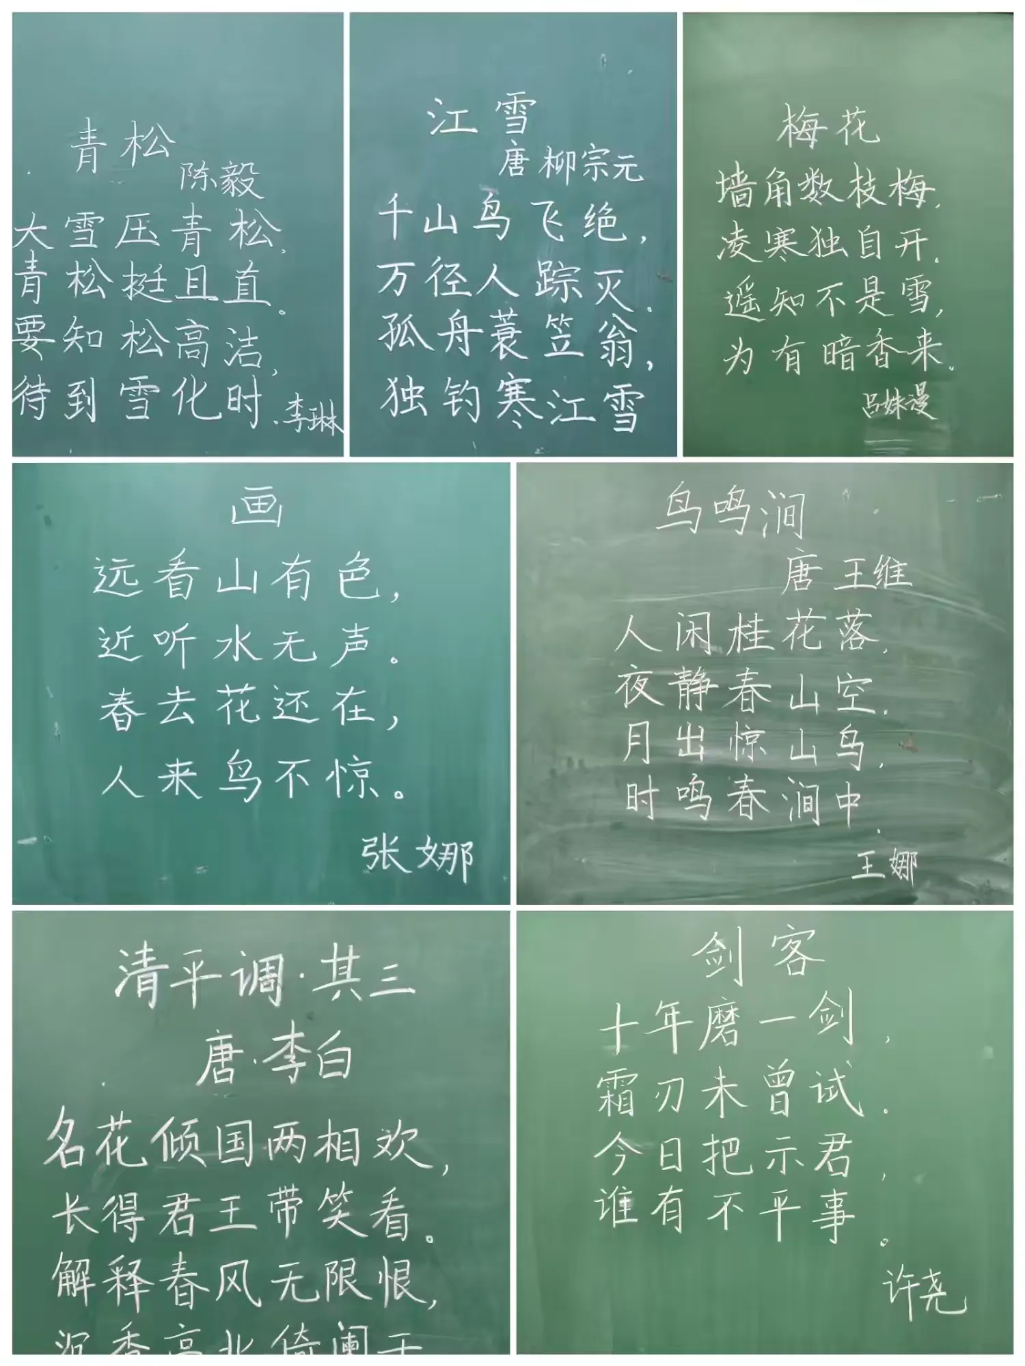 青松
陈毅
大雪压青松，
青松挺且直。
要知松高洁，
待到雪化时.
李琳
江雪
唐 柳宗元
千山鸟飞绝，
万径人踪灭.
孤舟蓑笠翁，
独钓寒江雪
梅花
墙角数枝梅，
凌寒独自开.
遥知不是雪，
为有暗香来。
吕姝漫
画
远看山有色，
近听水无声。
春去花还在，
人来鸟不惊。
张娜
鸟鸣涧
唐 王维
人闲桂花落，
夜静春山空.
月出惊山鸟，
时鸣春涧中.
王娜
清平调·其三
唐·李白
名花倾国两相欢，
长得君王带笑看。
解释春风无限恨，
沉香亭北倚阑干
剑客
十年磨一剑，
霜刃未曾试.
今日把示君，
谁有不平事。
许尧